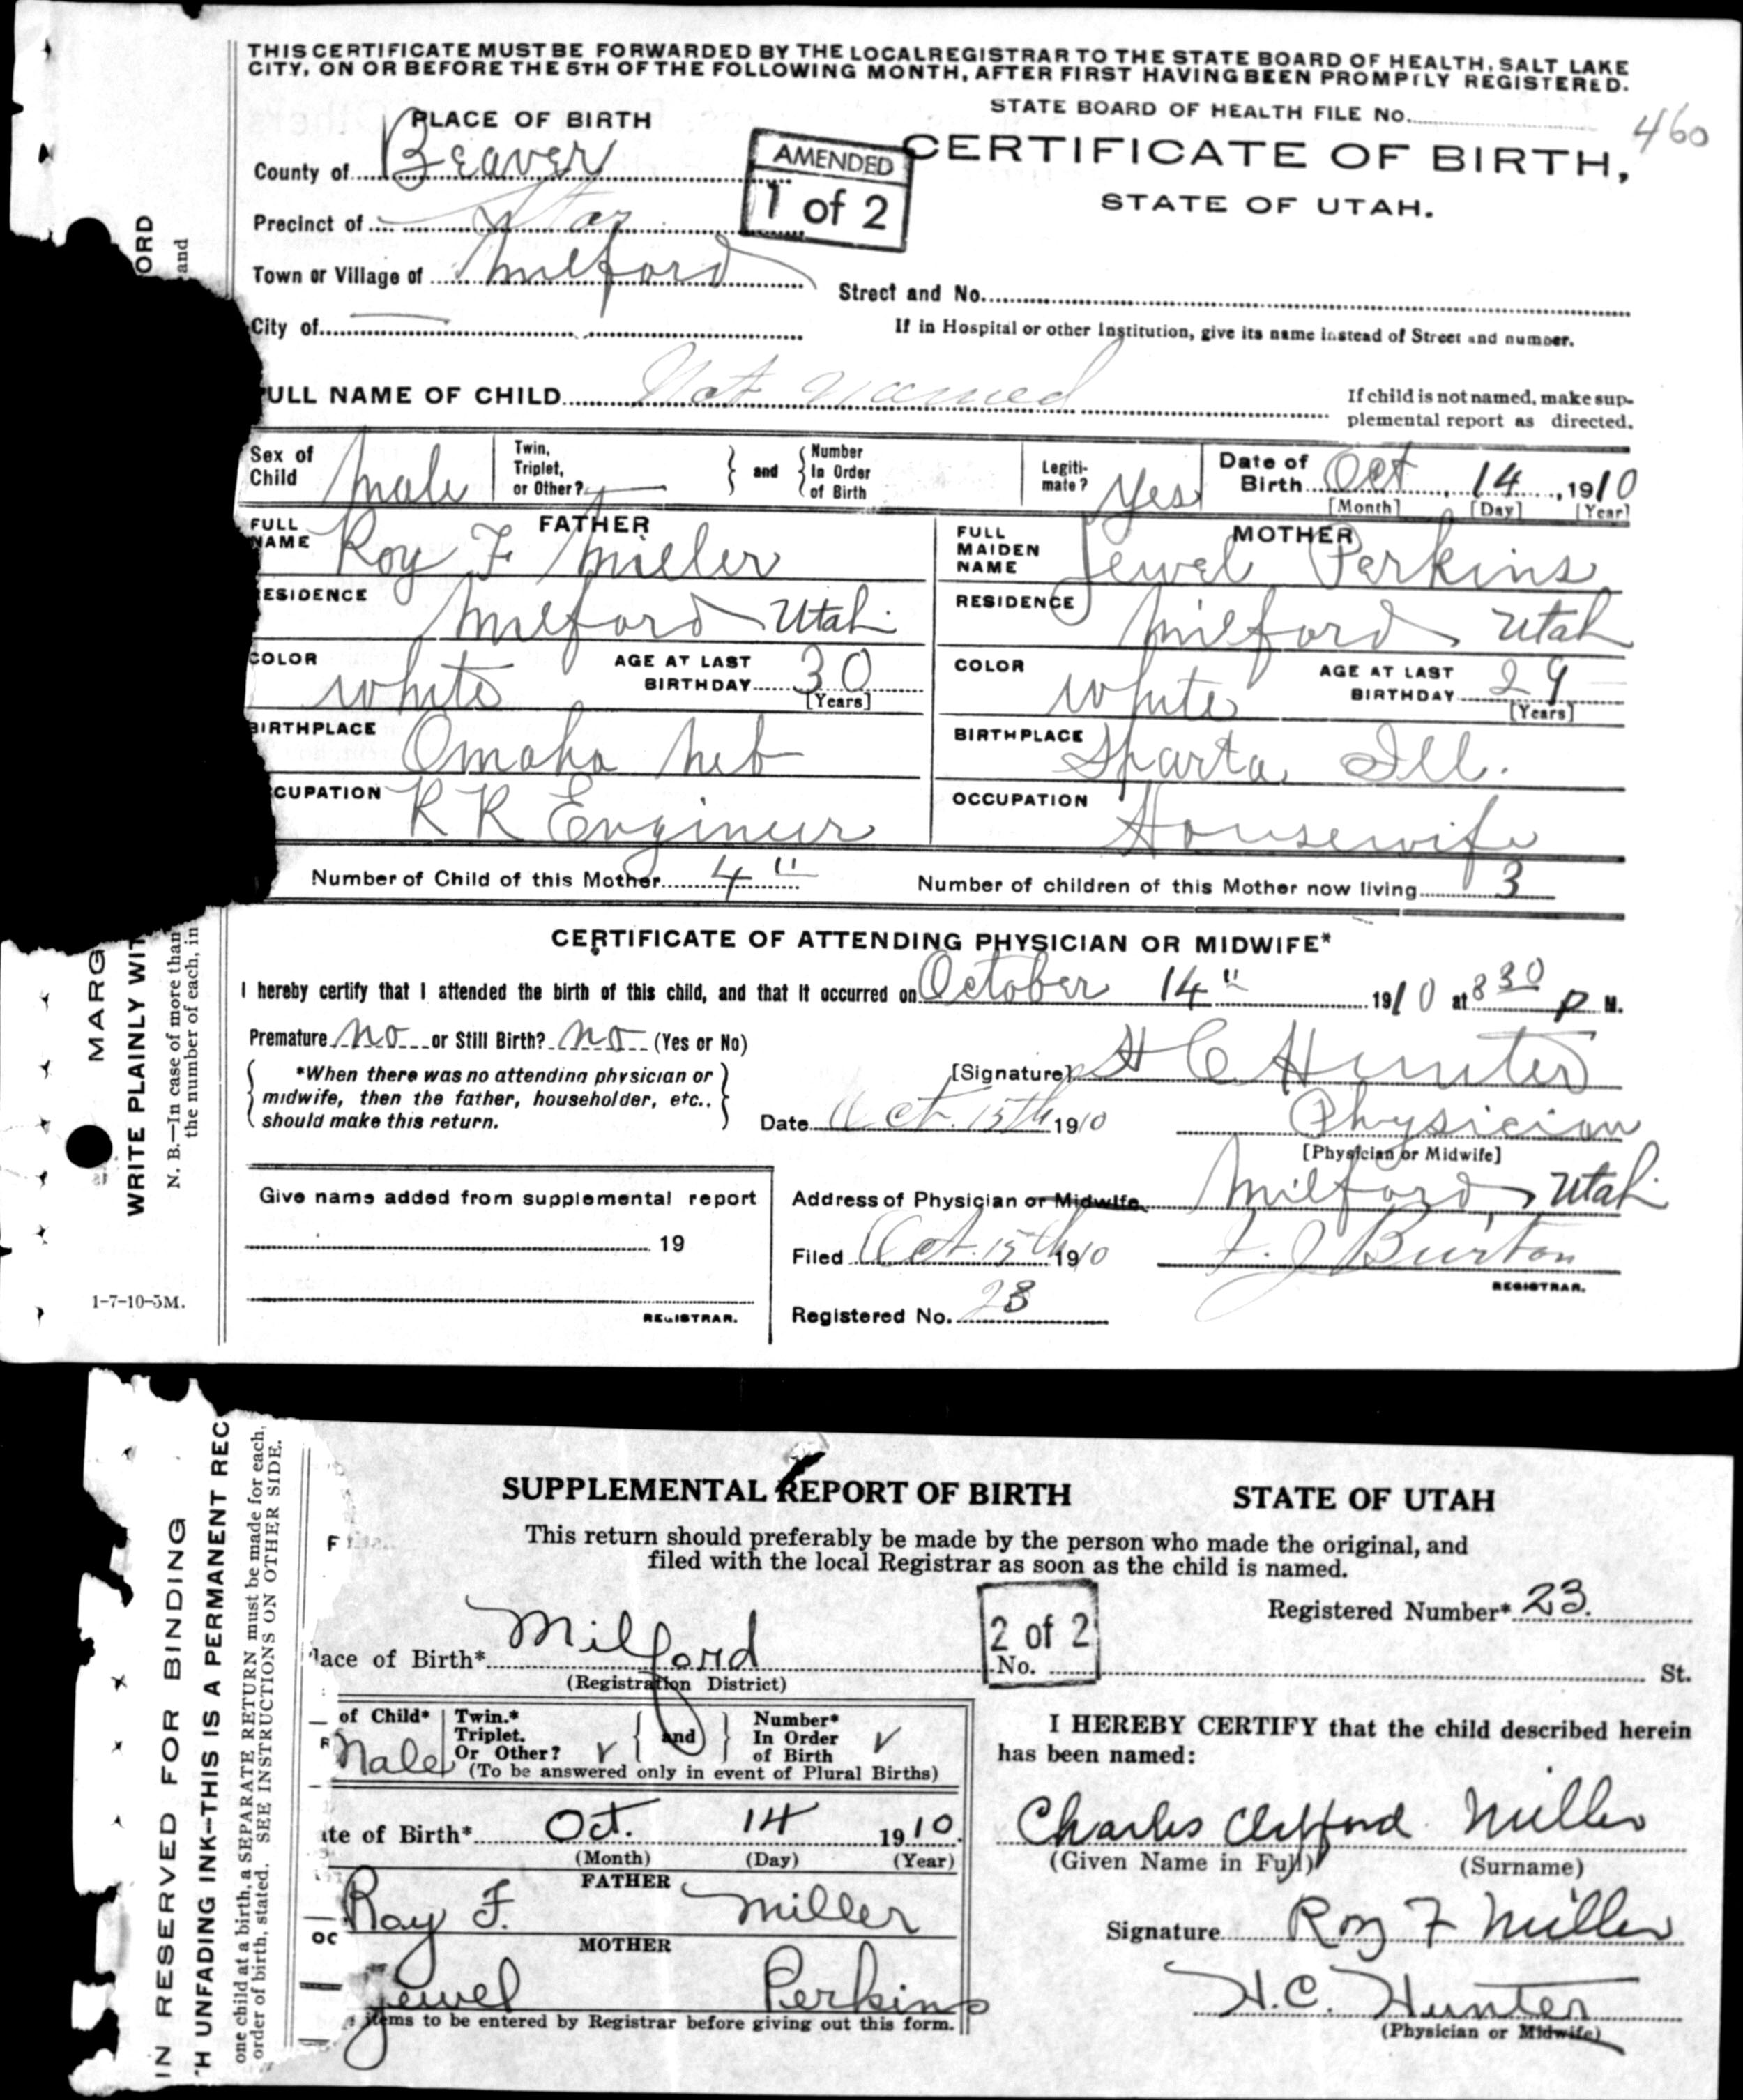 THIS CERTIFICATE MUST BE FORWARDED BY THE LOCAL REGISTRAR TO THE STATE BOARD OF HEALTH, SALT LAKE
CITY, ON OR BEFORE THE 5TH OF THE FOLLOWING MONTH, AFTER FIRST HAVING BEEN PROMPTLY REGISTERED.
STATE BOARD OF HEALTH FILE No. 460
PLACE OF BIRTH
CERTIFICATE OF BIRTH,
STATE OF UTAH.
AMENDED
1 of 2
County of Beaver
Precinct of Star
Town or Village of Milford
Street and No.
City of —
If in Hospital or other Institution, give its name instead of Street and number.
ULL NAME OF CHILD Not named
If child is not named, make sup-
plemental report as directed.
Sex of Child Male
Twin, Triplet, or Other? —
and
Number In Order of Birth
Legiti-mate? Yes
Date of Birth Oct 14, 1910
[Month] [Day] [Year]
FATHER
FULL NAME Roy F Miller
MOTHER
FULL MAIDEN NAME Jewel Perkins
ESIDENCE Milford Utah
RESIDENCE Milford, Utah
COLOR White
AGE AT LAST BIRTHDAY 30
[Years]
COLOR White
AGE AT LAST BIRTHDAY 29
[Years]
BIRTHPLACE Omaha Neb
BIRTHPLACE Sparta Ill.
CUPATION R R Engineer
OCCUPATION Housewife
Number of Child of this Mother 4"
Number of children of this Mother now living 3
CERTIFICATE OF ATTENDING PHYSICIAN OR MIDWIFE*
I hereby certify that I attended the birth of this child, and that it occurred on October 14" 1910 at 8 30 P M.
Premature No or Still Birth? No (Yes or No)
*When there was no attending physician or
midwife, then the father, householder, etc.,
should make this return.
[Signature] H C Hunter
Date Oct. 15th 1910
Physician
[Physician or Midwife]
Give name added from supplemental report
19
REGISTRAR.
Address of Physician or Midwife Milford, Utah
Filed Oct. 15th 1910
F. J Burton
REGISTRAR.
Registered No. 23
ORD
and
MARG
WRITE PLAINLY WIT
N. B.—In case of more than
the number of each, in
1-7-10-5M.
SUPPLEMENTAL REPORT OF BIRTH
STATE OF UTAH
This return should preferably be made by the person who made the original, and
filed with the local Registrar as soon as the child is named.
2 of 2
Registered Number* 23.
lace of Birth* Milford
No. St.
(Registration District)
of Child* Male
Twin.* Triplet. Or Other? ✓
and
Number* In Order of Birth ✓
(To be answered only in event of Plural Births)
te of Birth* Oct. 14 1910.
(Month) (Day) (Year)
FATHER
Roy F. Miller
OC
MOTHER
Jewel Perkins
items to be entered by Registrar before giving out this form.
I HEREBY CERTIFY that the child described herein
has been named:
Charles Clifford Miller
(Given Name in Full) (Surname)
Signature Roy F Miller
H.C. Hunter
(Physician or Midwife)
IN RESERVED FOR BINDING
H UNFADING INK—THIS IS A PERMANENT REC
one child at a birth, a SEPARATE RETURN must be made for each,
order of birth, stated. SEE INSTRUCTIONS ON OTHER SIDE.